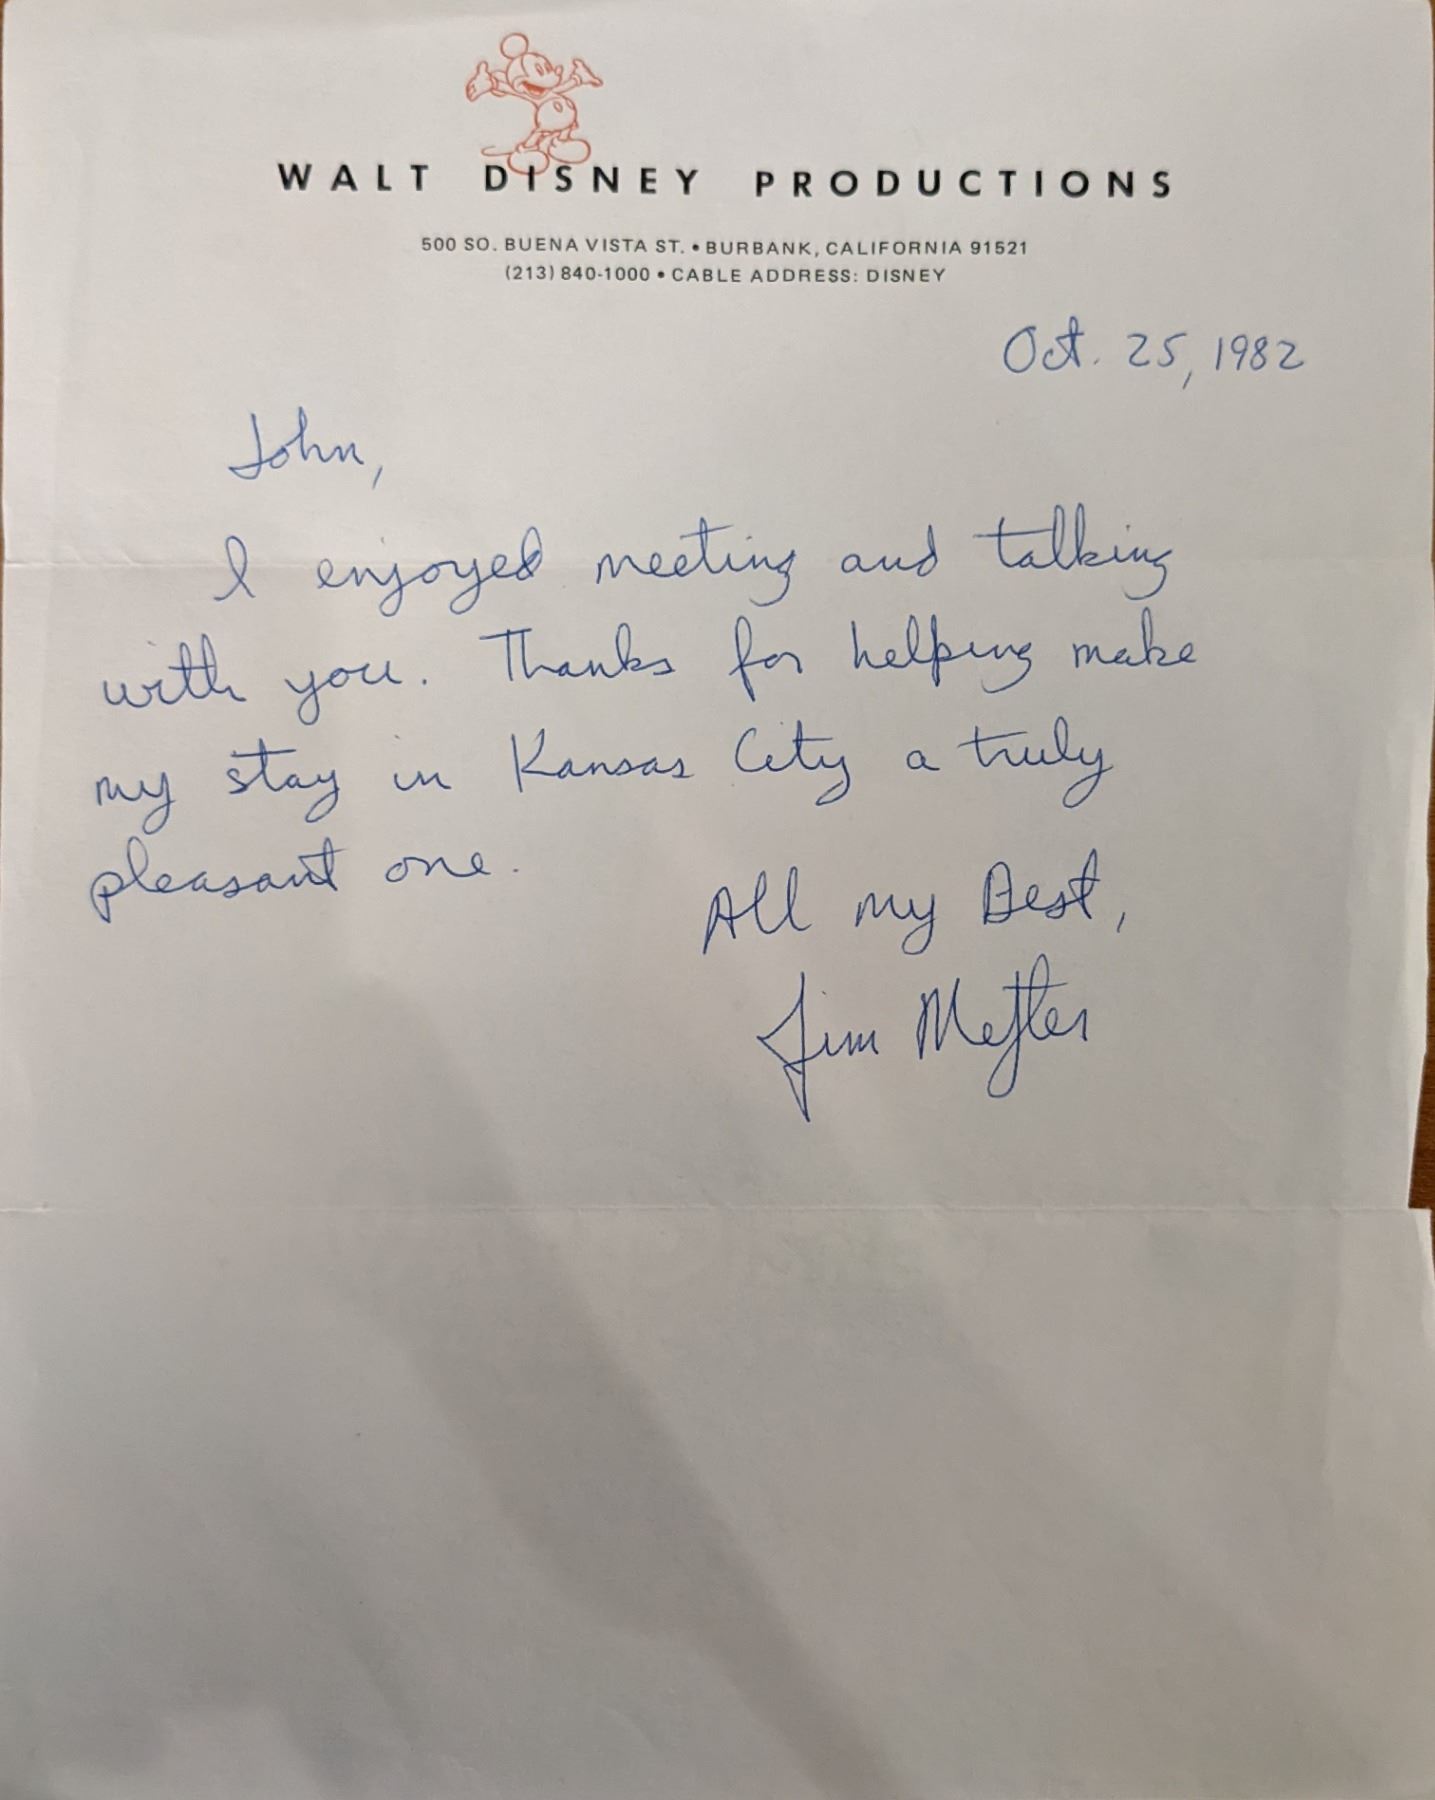 WALT DISNEY PRODUCTIONS
500 SO. BUENA VISTA ST. • BURBANK, CALIFORNIA 91521
(213) 840-1000 • CABLE ADDRESS: DISNEY
Oct. 25, 1982
John,
I enjoyed meeting and talking
with you. Thanks for helping make
my stay in Kansas City a truly
pleasant one.
All my Best,
Jim